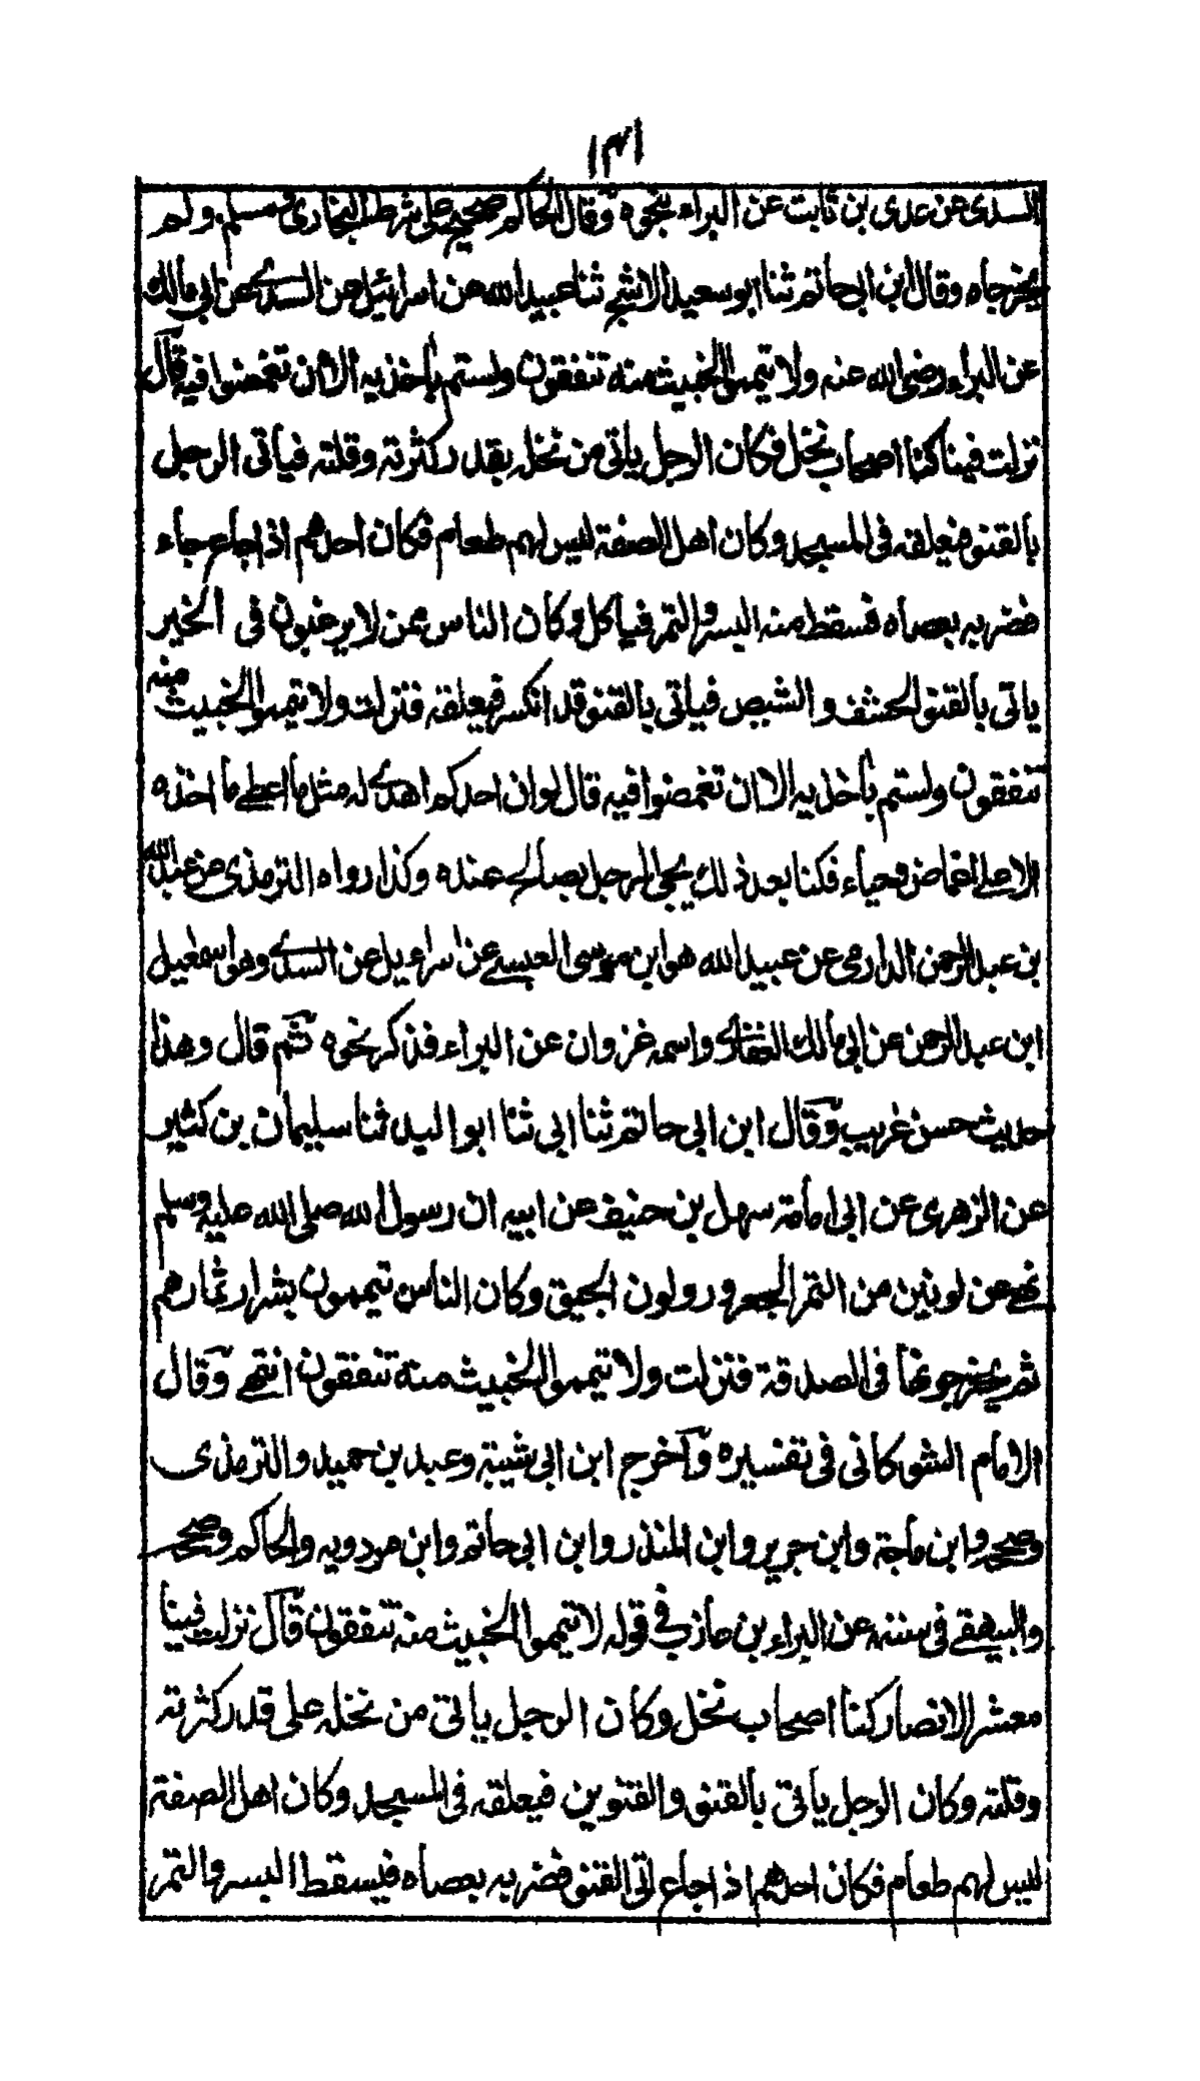 ١٣١
السدى عن عدى بن ثابت عن البراء بنحوه وقال الحاكم صحيح على شرط البخارى ومسلم ولم
يخرجاه وقال ابن ابى حاتم ثنا ابو سعيد الاشج ثنا عبيد الله عن اسرائيل عن السدى عن ابى مالك
عن البراء رضى الله عنه ولا تيمموا الخبيث منه تنفقون ولستم بأخذيه الا ان تغمضوا فيه قال
نزلت فينا كنا اصحاب نخل فكان الرجل ياتى من نخله بقدر كثرته وقلته فيأتى الرجل
بالقنو فيعلقه فى المسجد وكان اهل الصفة ليس لهم طعام فكان احدهم اذا جاع جاء
فضربه بعصاه فسقط منه البسر والتمر فيأكل وكان الناس ممن لا يرغبون فى الخير
ياتى بالقنو الحشف والشيص فياتى بالقنو قد انكسر فيعلقه فنزلت ولا تيمموا الخبيث منه
تنفقون ولستم بأخذيه الا ان تغمضوا فيه قال لو ان احدكم اهدى له مثل ما اعطى ما اخذه
الا على اغماض وحياء فكنا بعد ذلك يجئ الرجل بصالح عنده وكذا رواه الترمذى عن عبد الله
بن عبد الرحمن الدارمى عن عبيد الله هو ابن موسى العبسى عن اسراءيل عن السدى وهو اسمعيل
ابن عبد الرحمن عن ابى مالك الغفارى واسمه غزوان عن البراء فذكر نحوه ثم قال وهذا
حديث حسن غريب وقال ابن ابى حاتم ثنا ابى ثنا ابو اليد ثنا سليمان بن كثير
عن الزهرى عن ابى امامة سهل بن حنيف عن ابيه ان رسول الله صلى الله عليه وسلم
نهى عن لونين من التمر الجعرور ولون الحبيق وكان الناس تيممون بشرار ثمارهم
ثم يخرجونها فى الصدقة فنزلت ولا تيمموا الخبيث منه تنفقون انتهى وقال
الامام الشوكانى فى تفسيره وآخرج ابن ابى شيبة وعبد بن حميد والترمذى
وصححه وابن ماجة وابن جرير وابن المنذر وابن ابى حاتم وابن مردويه والحاكم وصححه
والبيهقى فى سننه عن البراء بن عازب فى قوله لا تيمموا الخبيث منه تنفقون قال نزلت فينا
معشر الانصار كنا اصحاب نخل وكان الرجل ياتى من نخله على قدر كثرته
وقلته وكان الرجل يأتى بالقنو والقنوين فيعلقه فى المسجد وكان اهل الصفة
ليس لهم طعام فكان احدهم اذا جاع اتى القنو فضربه بعصاه فيسقط البسر والتمر